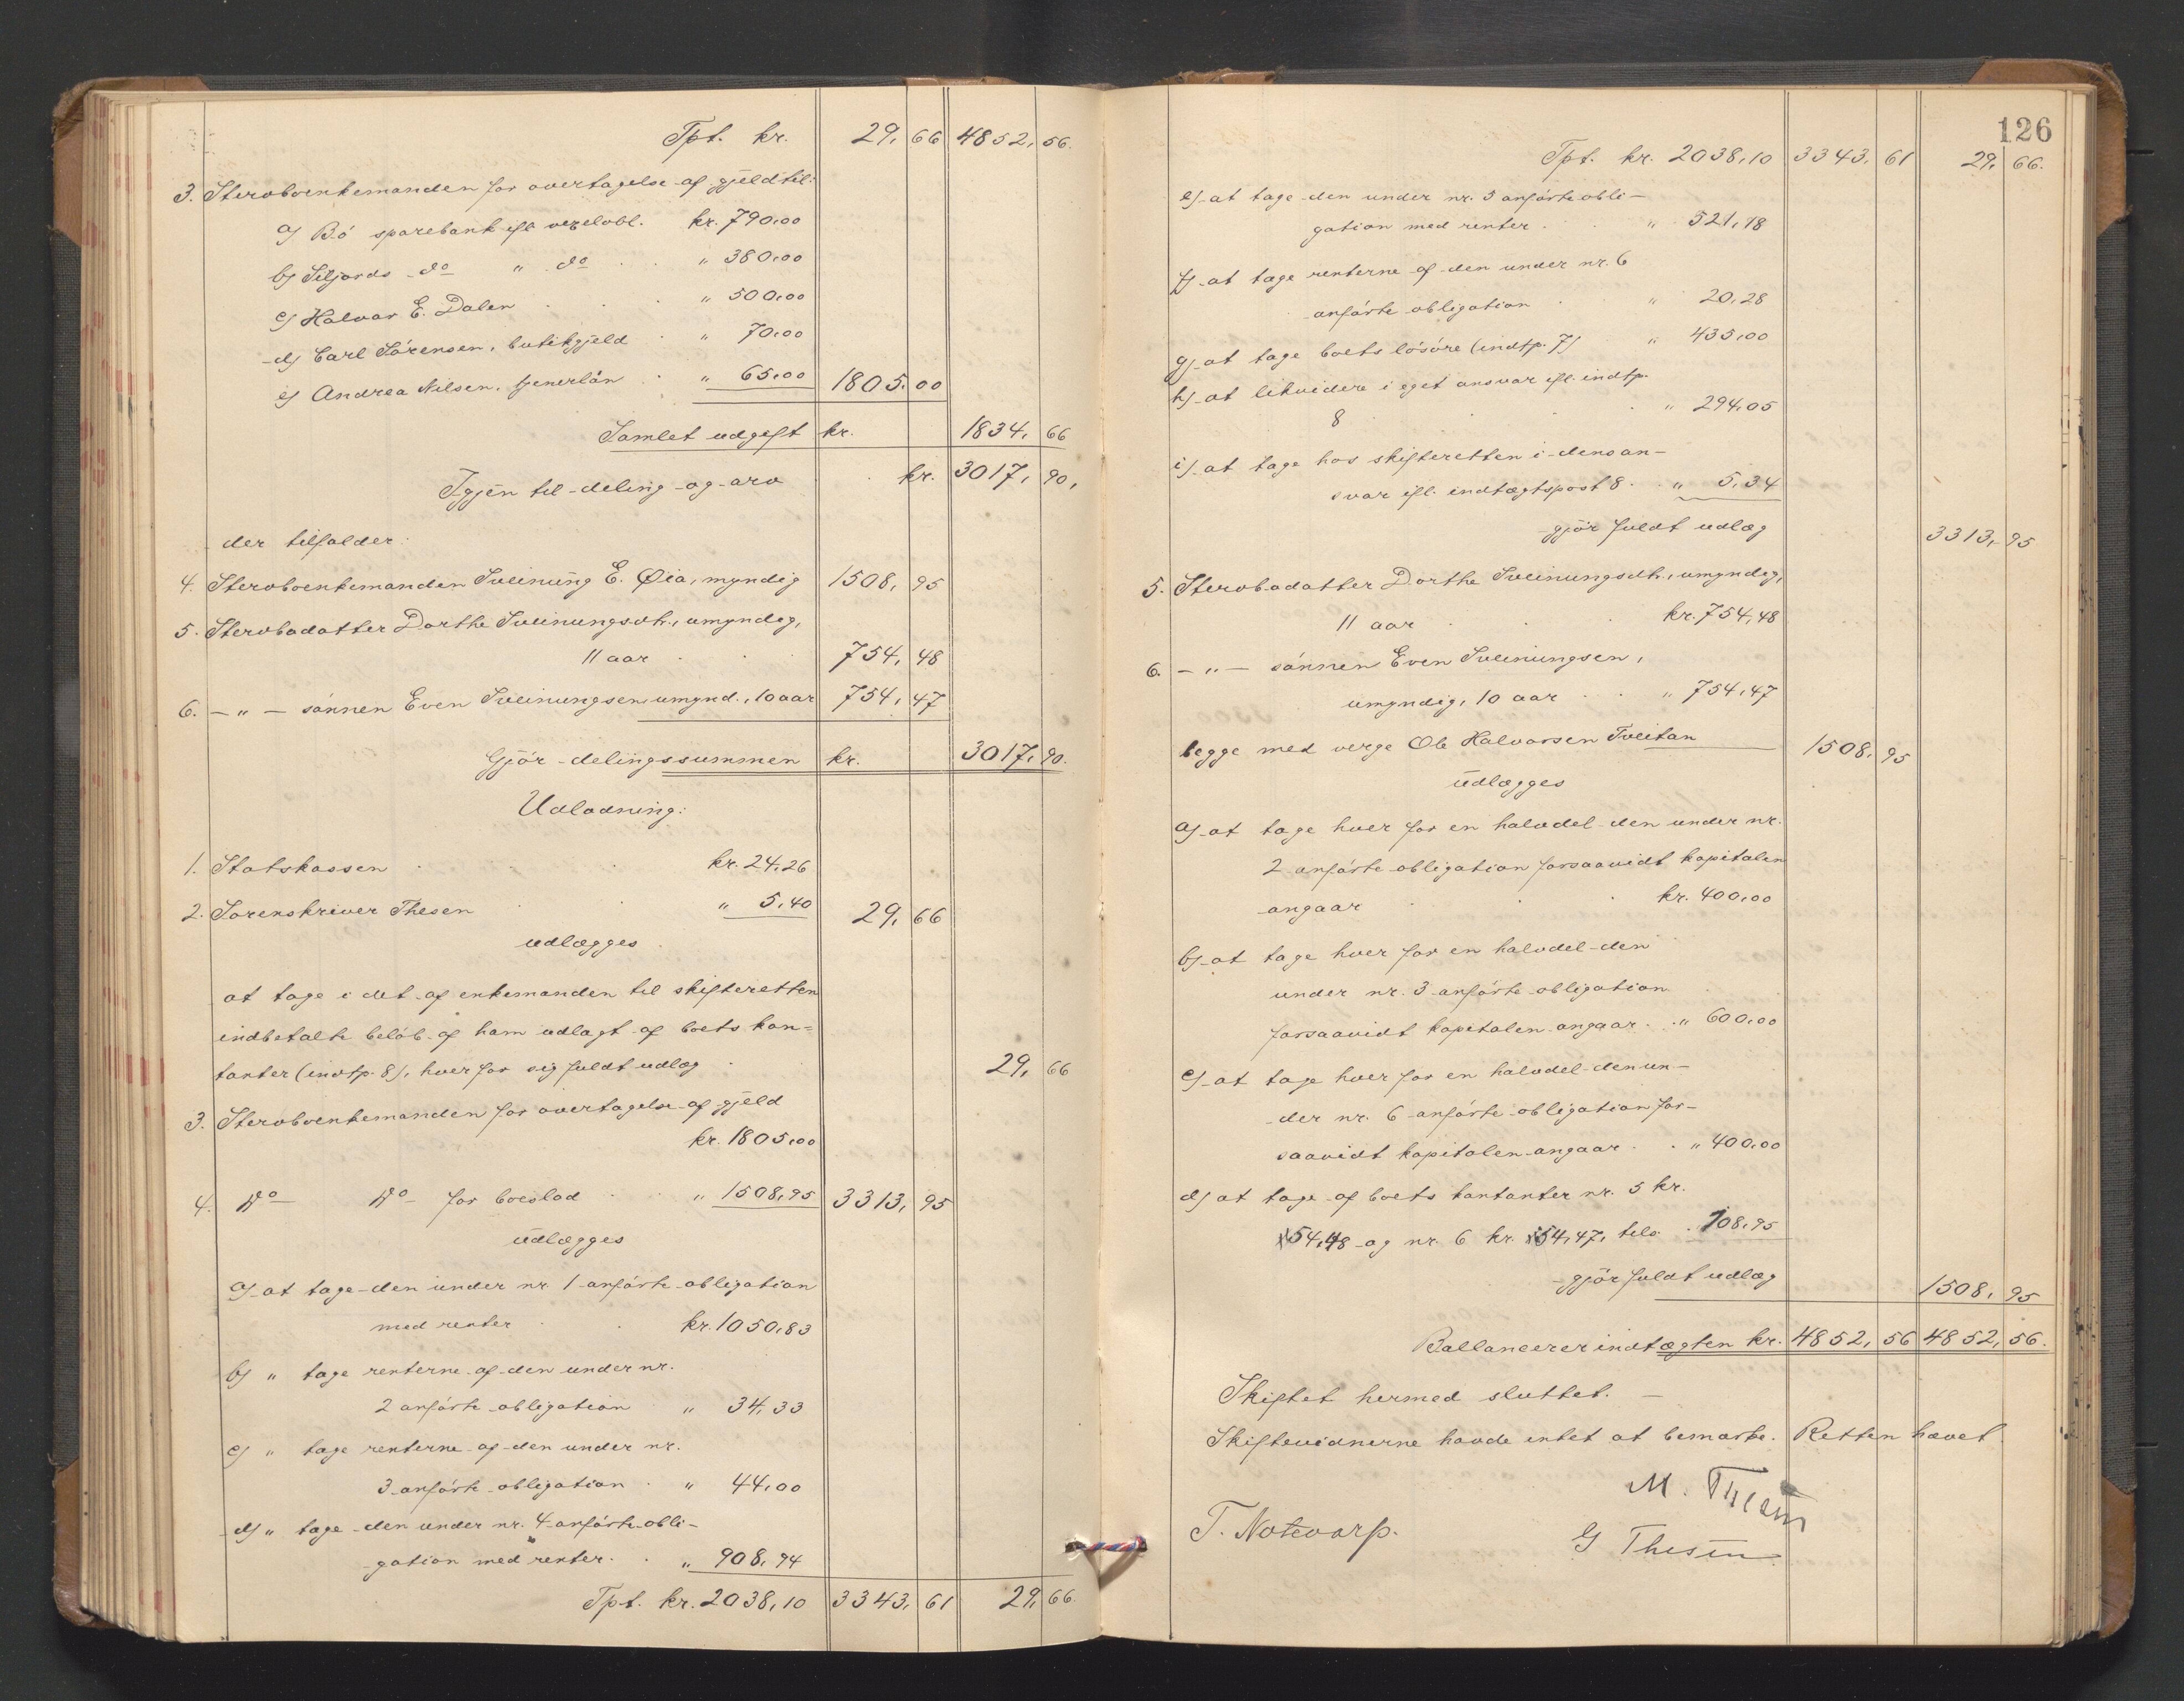 Tpt. kr. 29,66 4852,56.
3. Stervboenkemanden for overtagelse af gjeld til:
a) Bø sparebank ifl. vexelobl. kr. 790,00
b) Siljords do " do . . " 380,00
c) Halvor E. Dalen . . . " 500,00
d) Carl Sørensen, butikgjeld . " 70,00
e) Andrea Nilsen, tjenerløn . " 65,00 1805,00
Samlet udgift kr. 1834,66
Igjen til deling og arv . kr. 3017,90,
der tilfalder:
4. Stervboenkemanden Sveinung E. Øia, myndig 1508,95
5. Stervbodatter Dorthe Sveinungsdtr., umyndig,
11 aar . . . 754,48
6. - " - sønnen Even Sveinungsen, umynd., 10 aar 754,47
Gjør delingssummen kr. 3017,90.
Udlodning:
1. Statskassen . . . kr. 24,26
2. Sorenskriver Thesen . . " 5,40 29,66
udlægges
at tage i det af enkemanden til skifteretten
indbetalte beløb af ham udlagt af boets kon=
tanter (indtp. 8), hver for sig fuldt udlæg . 29,66
3. Stervboenkemanden for overtagelse af gjeld
kr. 1805,00
4. Do Do for boeslod . . " 1508,95 3313,95
udlægges
a) at tage den under nr. 1 anførte obligation
med renter . . kr. 1050,83
b) " tage renterne af den under nr.
2 anførte obligation " 34,33
c) " tage renterne af den under nr.
3 anførte obligation . " 44,00
d) " tage den under nr. 4 anførte obli-
gation med renter. . " 908,94
Tpt. kr. 2038,10 3343,61 29,66.
126
Tpt. kr. 2038,10 3343,61 29,66.
e) at tage den under nr. 5 anførte obli-
gation med renter . . " 521,18
f) at tage renterne af den under nr. 6
anførte obligation . " 20,28
g) at tage boets løsøre (indtp. 7) " 435,00
h) at likvidere i eget ansvar ifl. indtp.
8 . . . . " 294,05
i) at tage hos skifteretten i dens an-
svar ifl. indtægtspost 8 . . " 5,34
gjør fuldt udlæg 3313,95
5. Stervbodatter Dorthe Sveinungsdtr., umyndig,
11 aar . . kr. 754,48
6. - " - sønnen Even Sveinungsen,
umyndig, 10 aar . . " 754,47
begge med verge Ole Halvorsen Tveitan 1508,95
udlægges
a) at tage hver for en halvdel den under nr.
2 anførte obligation forsaavidt kapitalen
angaar . . . kr. 400,00
b) at tage hver for en halvdel den
under nr. 3 anførte obligation
forsaavidt kapitalen angaar . . " 600,00
c) at tage hver for en halvdel den un-
der nr. 6 anførte obligation for-
saavidt kapitalen angaar . . " 400,00
d) at tage af boets kontanter nr. 5 kr.
54,48 og nr. 6 kr. 54,47, tils. . 108,95
gjør fuldt udlæg 1508,95
Ballancerer indtægten kr. 4852,56 4852,56.
Skiftet hermed sluttet. —
Skiftevidnerne havde intet at bemærke. Retten hævet.
M. Thesen
T. Notevarp. G Thesen